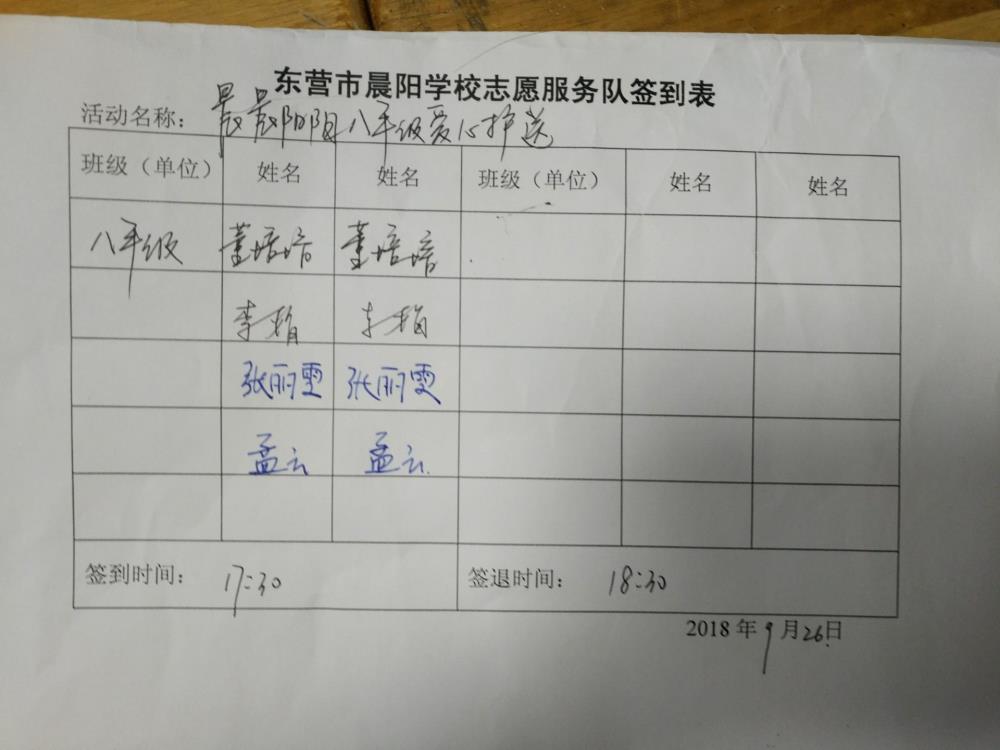 东营市晨阳学校志愿服务队签到表
活动名称: 晨晨阳阳八年级爱心护送
班级(单位) 姓名 姓名 班级(单位) 姓名 姓名
八年级 董培培 董培培
李梅 李梅
张丽雯 张丽雯
孟云 孟云
签到时间: 17:30 签退时间: 18:30
2018年9月26日